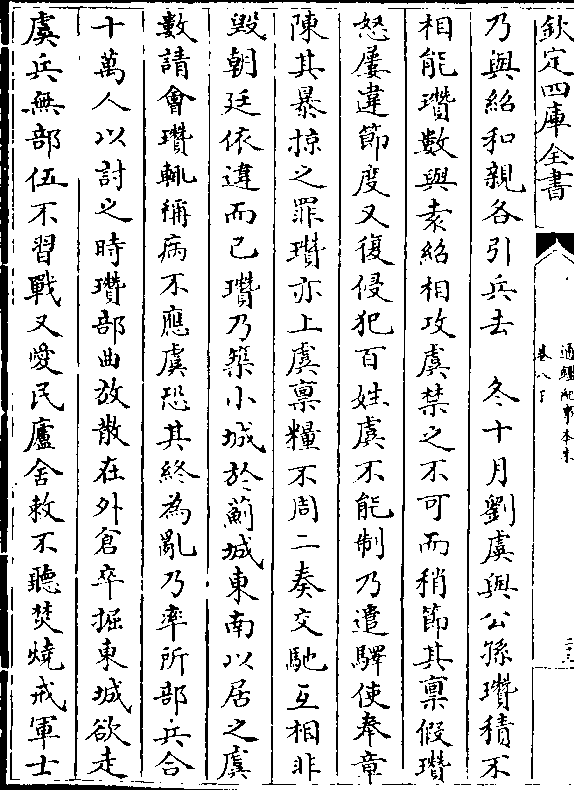 欽定四庫全書
通鑑紀事本末
卷八下
乃與紹和親各引兵去　冬十月劉虞與公孫瓚積不
相能瓚數與袁紹相攻虞禁之不可而稍節其稟假瓚
怒屢違節度又復侵犯百姓虞不能制乃遣驛使奉章
陳其暴掠之罪瓚亦上虞稟糧不周二奏交馳互相非
毀朝廷依違而已瓚乃築小城於薊城東南以居之虞
數請會瓚輒稱病不應虞恐其終為亂乃率所部兵合
十萬人以討之時瓚部曲放散在外倉卒掘東城欲走
虞兵無部伍不習戰又愛民廬舍敕不聽焚燒戒軍士